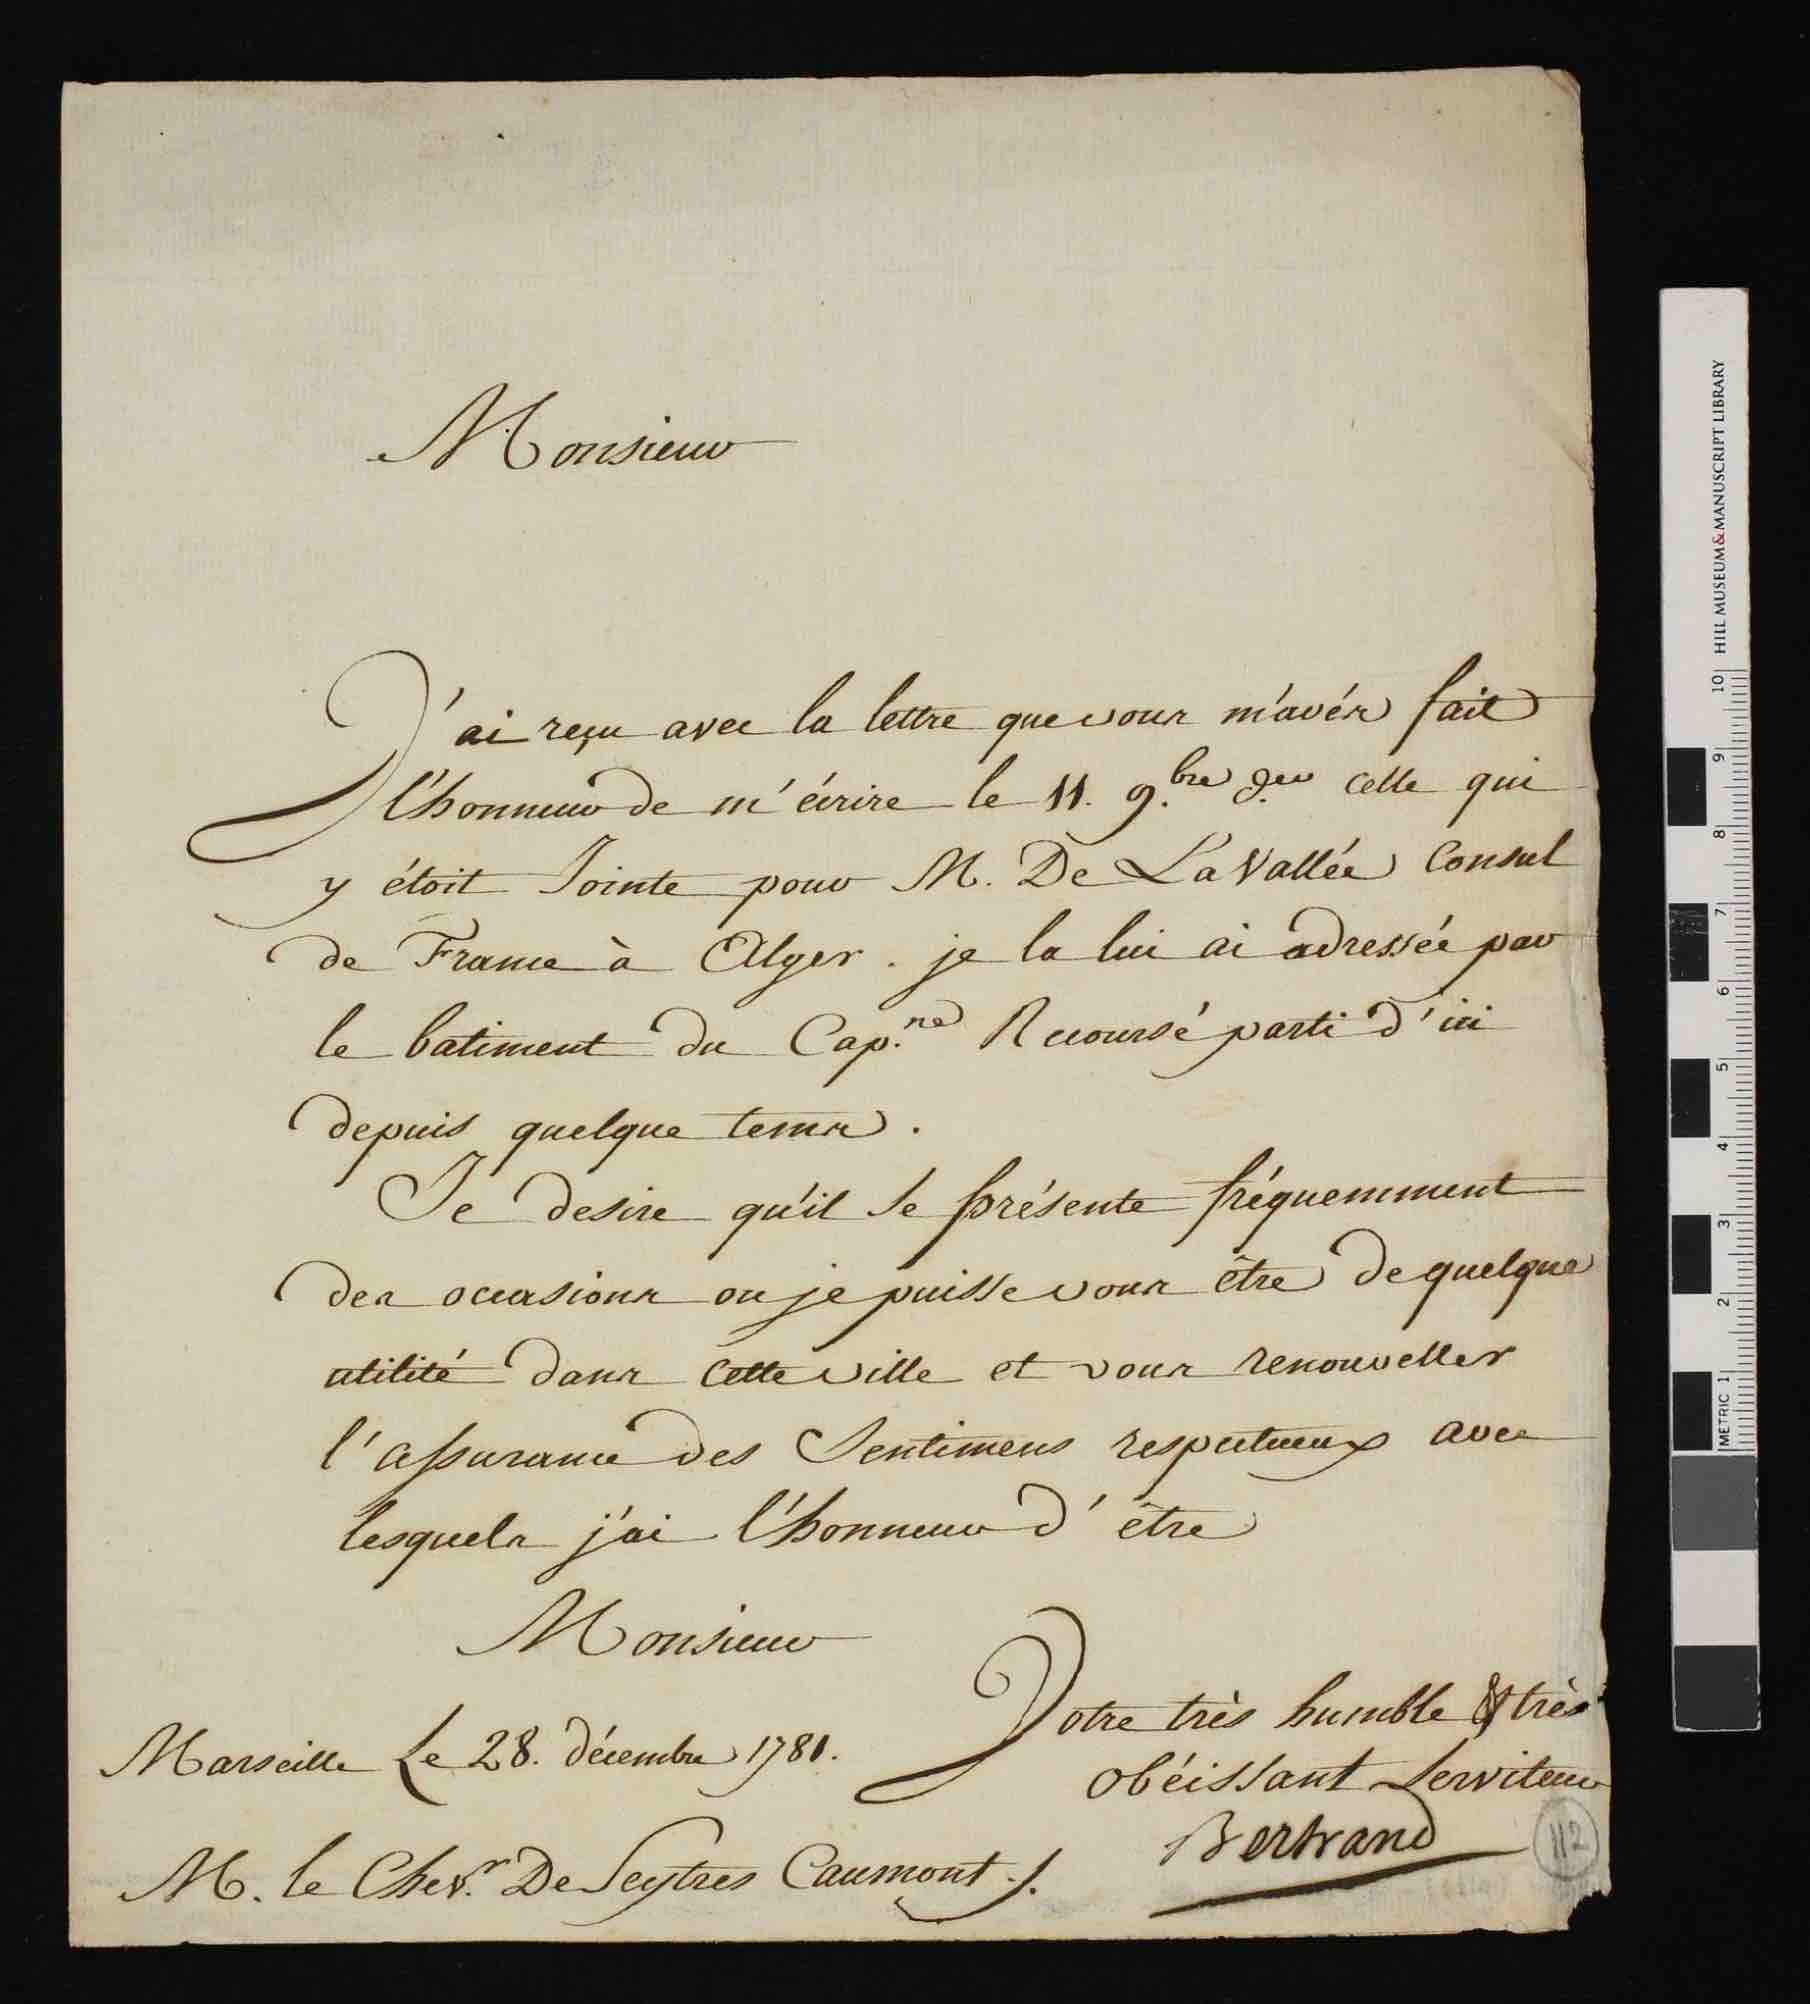 Monsieur
J'ai reçu avec la lettre que vous m'avés fait
l'honneur de m'écrire le 11. 9.bre d.er celle qui
y étoit Jointe pour M. De La Vallée Consul
de France à Alger. je la lui ai adressée par
le batiment du Cap.ne Recoursé parti d'ici
depuis quelque tems.
Je desire qu'il se présente fréquemment
des occasions ou je puisse vous être de quelque
utilité dans cette ville et vous renouveller
l'assurance des Sentimens respectueux avec
lesquels j'ai l'honneur d'être
Monsieur
Votre très humble & très
obéissant Serviteur
Bertrand
Marseille Le 28. décembre 1781.
M. le Chev.r De Seytres Caumont ./.
112
HILL MUSEUM & MANUSCRIPT LIBRARY
METRIC 1 2 3 4 5 6 7 8 9 10